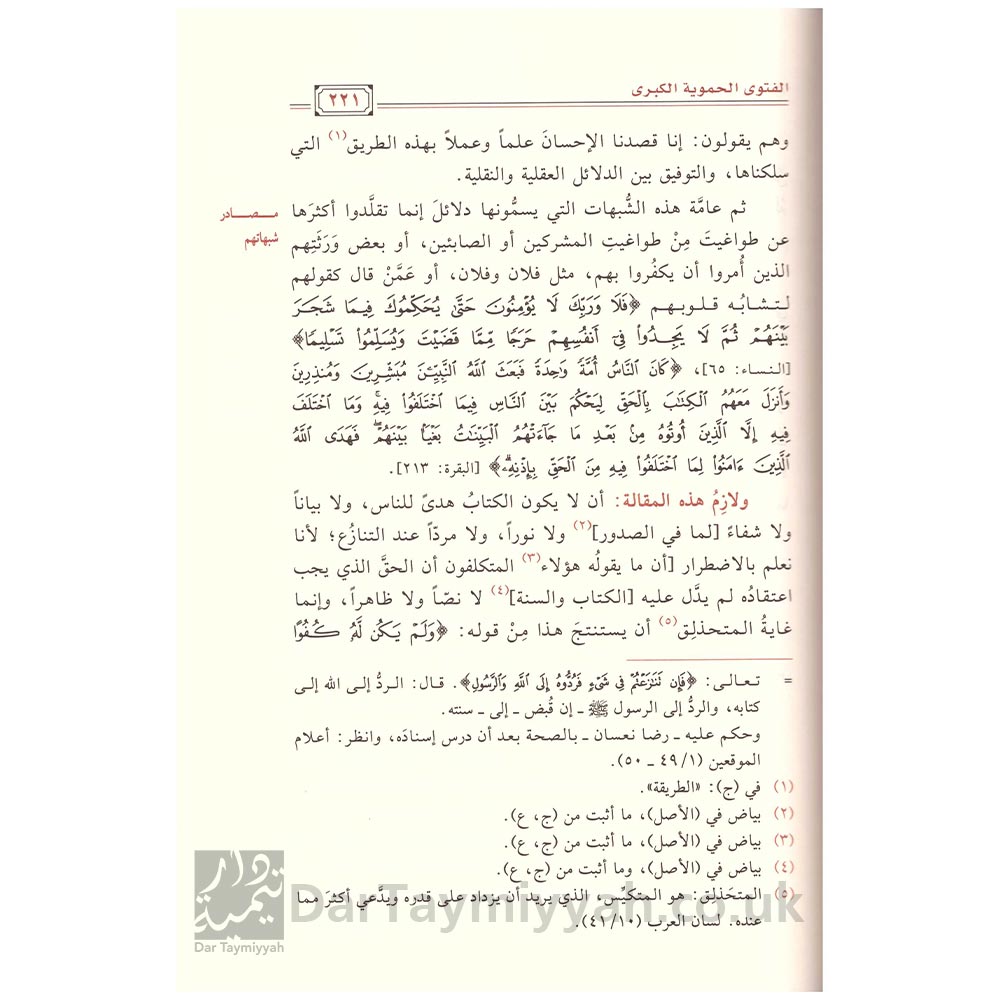 الفتوى الحموية الكبرى
٢٢١
وهم يقولون: إنا قصدنا الإحسانَ علماً وعملاً بهذه الطريق(١) التي
سلكناها، والتوفيق بين الدلائل العقلية والنقلية.
ثم عامَّة هذه الشُّبهات التي يسمُّونها دلائلَ إنما تقلَّدوا أكثرَها
مصادر
عن طواغيتَ مِنْ طواغيتِ المشركين أو الصابئين، أو بعض وَرَثَتِهم
شبهاتهم
الذين أُمروا أن يكفُروا بهم، مثل فلان وفلان، أو عَمَّنْ قال كقولهم
لتشابُه قلوبهم ﴿فَلَا وَرَبِّكَ لَا يُؤْمِنُونَ حَتَّىٰ يُحَكِّمُوكَ فِيمَا شَجَرَ
بَيْنَهُمْ ثُمَّ لَا يَجِدُوا۟ فِىٓ أَنفُسِهِمْ حَرَجًا مِّمَّا قَضَيْتَ وَيُسَلِّمُوا۟ تَسْلِيمًا﴾
[النساء: ٦٥]، ﴿كَانَ ٱلنَّاسُ أُمَّةً وَٰحِدَةً فَبَعَثَ ٱللَّهُ ٱلنَّبِيِّـۧنَ مُبَشِّرِينَ وَمُنذِرِينَ
وَأَنزَلَ مَعَهُمُ ٱلْكِتَٰبَ بِٱلْحَقِّ لِيَحْكُمَ بَيْنَ ٱلنَّاسِ فِيمَا ٱخْتَلَفُوا۟ فِيهِ ۚ وَمَا ٱخْتَلَفَ
فِيهِ إِلَّا ٱلَّذِينَ أُوتُوهُ مِنۢ بَعْدِ مَا جَآءَتْهُمُ ٱلْبَيِّنَٰتُ بَغْيًۢا بَيْنَهُمْ ۖ فَهَدَى ٱللَّهُ
ٱلَّذِينَ ءَامَنُوا۟ لِمَا ٱخْتَلَفُوا۟ فِيهِ مِنَ ٱلْحَقِّ بِإِذْنِهِۦ ۗ﴾ [البقرة: ٢١٣].
ولازِمُ هذه المقالة: أن لا يكون الكتابُ هدىً للناس، ولا بياناً
ولا شفاءً [لما في الصدور](٢) ولا نوراً، ولا مردّاً عند التنازُع؛ لأنا
نعلم بالاضطرار [أن ما يقولُه هؤلاء(٣) المتكلفون أن الحقَّ الذي يجب
اعتقادُه لم يدَّل عليه [الكتاب والسنة](٤) لا نصّاً ولا ظاهراً، وإنما
غايةُ المتحذلِق(٥) أن يستنتجَ هذا مِنْ قوله: ﴿وَلَمْ يَكُن لَّهُۥ كُفُوًا
= تعالى: ﴿فَإِن تَنَٰزَعْتُمْ فِى شَىْءٍ فَرُدُّوهُ إِلَى ٱللَّهِ وَٱلرَّسُولِ﴾. قال: الردُّ إلى الله إلى
كتابه، والردُّ إلى الرسول ﷺ ـ إن قُبض ـ إلى ـ سنته.
وحكم عليه ـ رضا نعسان ـ بالصحة بعد أن درس إسنادَه، وانظر: أعلام
الموقعين (١/ ٤٩ ـ ٥٠).
(١) في (ج): «الطريقة».
(٢) بياض في (الأصل)، ما أثبت من (ج، ع).
(٣) بياض في (الأصل)، ما أثبت من (ج، ع).
(٤) بياض في (الأصل)، وما أثبت من (ج، ع).
(٥) المتحَذلِق: هو المتكيِّس، الذي يريد أن يزداد على قدره ويدَّعي أكثرَ مما
عنده. لسان العرب (١٠/ ٤١).
دار تيمية
Dar Taymiyyah
DarTaymiyyah.co.uk